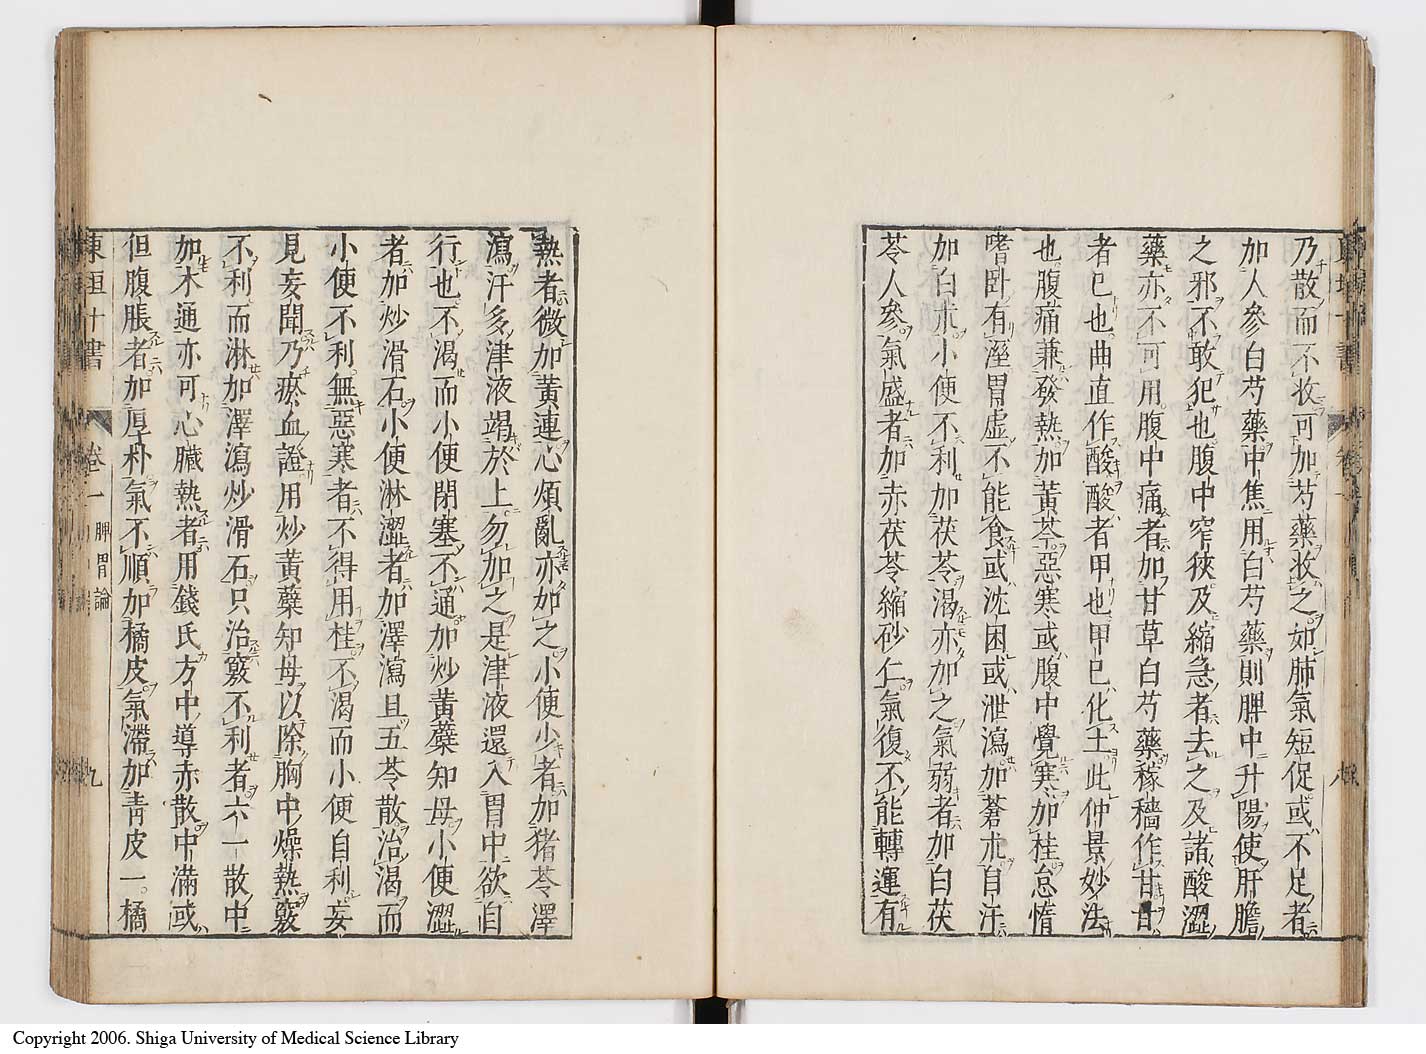 乃散而不收可加芍藥收之如肺氣短促或不足者
加人參白芍藥中焦用白芍藥則脾中升陽使肝膽
之邪不敢犯也腹中窄狹及縮急者去之及諸酸澀
藥亦不可用腹中痛者加甘草白芍藥稼穡作甘甘
者己也曲直作酸酸者甲也甲己化土此仲景妙法
也腹痛兼發熱加黃芩惡寒或腹中覺寒加桂怠惰
嗜卧有溼胃虛不能食或沈困或泄瀉加蒼朮自汗
加白朮小便不利加茯苓渴亦加之氣弱者加白茯
苓人參氣盛者加赤茯苓縮砂仁氣復不能轉運有
熱者微加黃連心煩亂亦加之小便少者加猪苓澤
瀉汗多津液竭於上勿加之是津液還入胃中欲自
行也不渴而小便閉塞不通加炒黃蘗知母小便澀
者加炒滑石小便淋澀者加澤瀉且五苓散治渴而
小便不利無惡寒者不得用桂不渴而小便自利妄
見妄聞乃瘀血證用炒黃蘗知母以除胸中燥熱竅
不利而淋加澤瀉炒滑石只治竅不利者六一散中
加木通亦可心臟熱者用錢氏方中導赤散中滿或
但腹脹者加厚朴氣不順加橘皮氣滯加青皮一橘
東垣十書 卷一 脾胃論 九
Copyright 2006. Shiga University of Medical Science Library